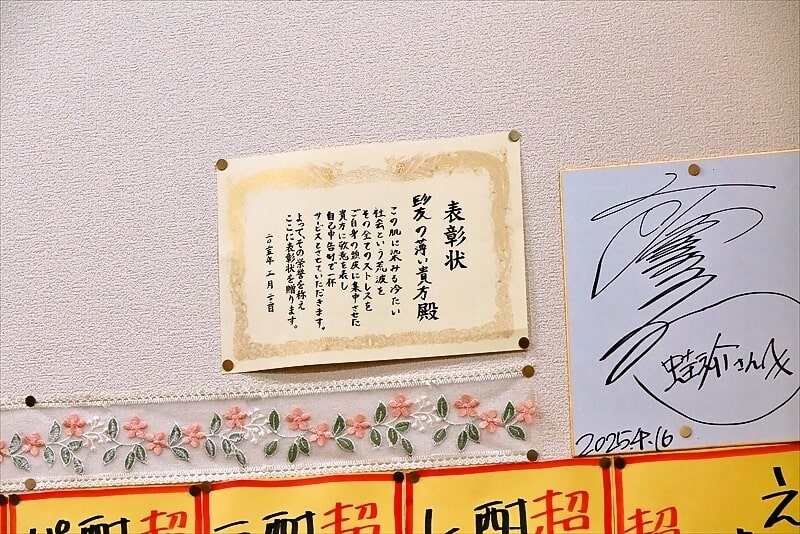 表彰状
の薄い貴方殿
この肌に染みる冷たい
社会という荒波を
その全てのストレスを
ご自身の頭皮に集中させた
貴方に敬意を表し
自己申告制で一杯
サービスとさせていただきます。
よって、その栄誉を称え
ここに表彰状を贈ります。
二〇二五年 二月
介さんへ
2025.4.16
酎超
酎超
酎超
超
え